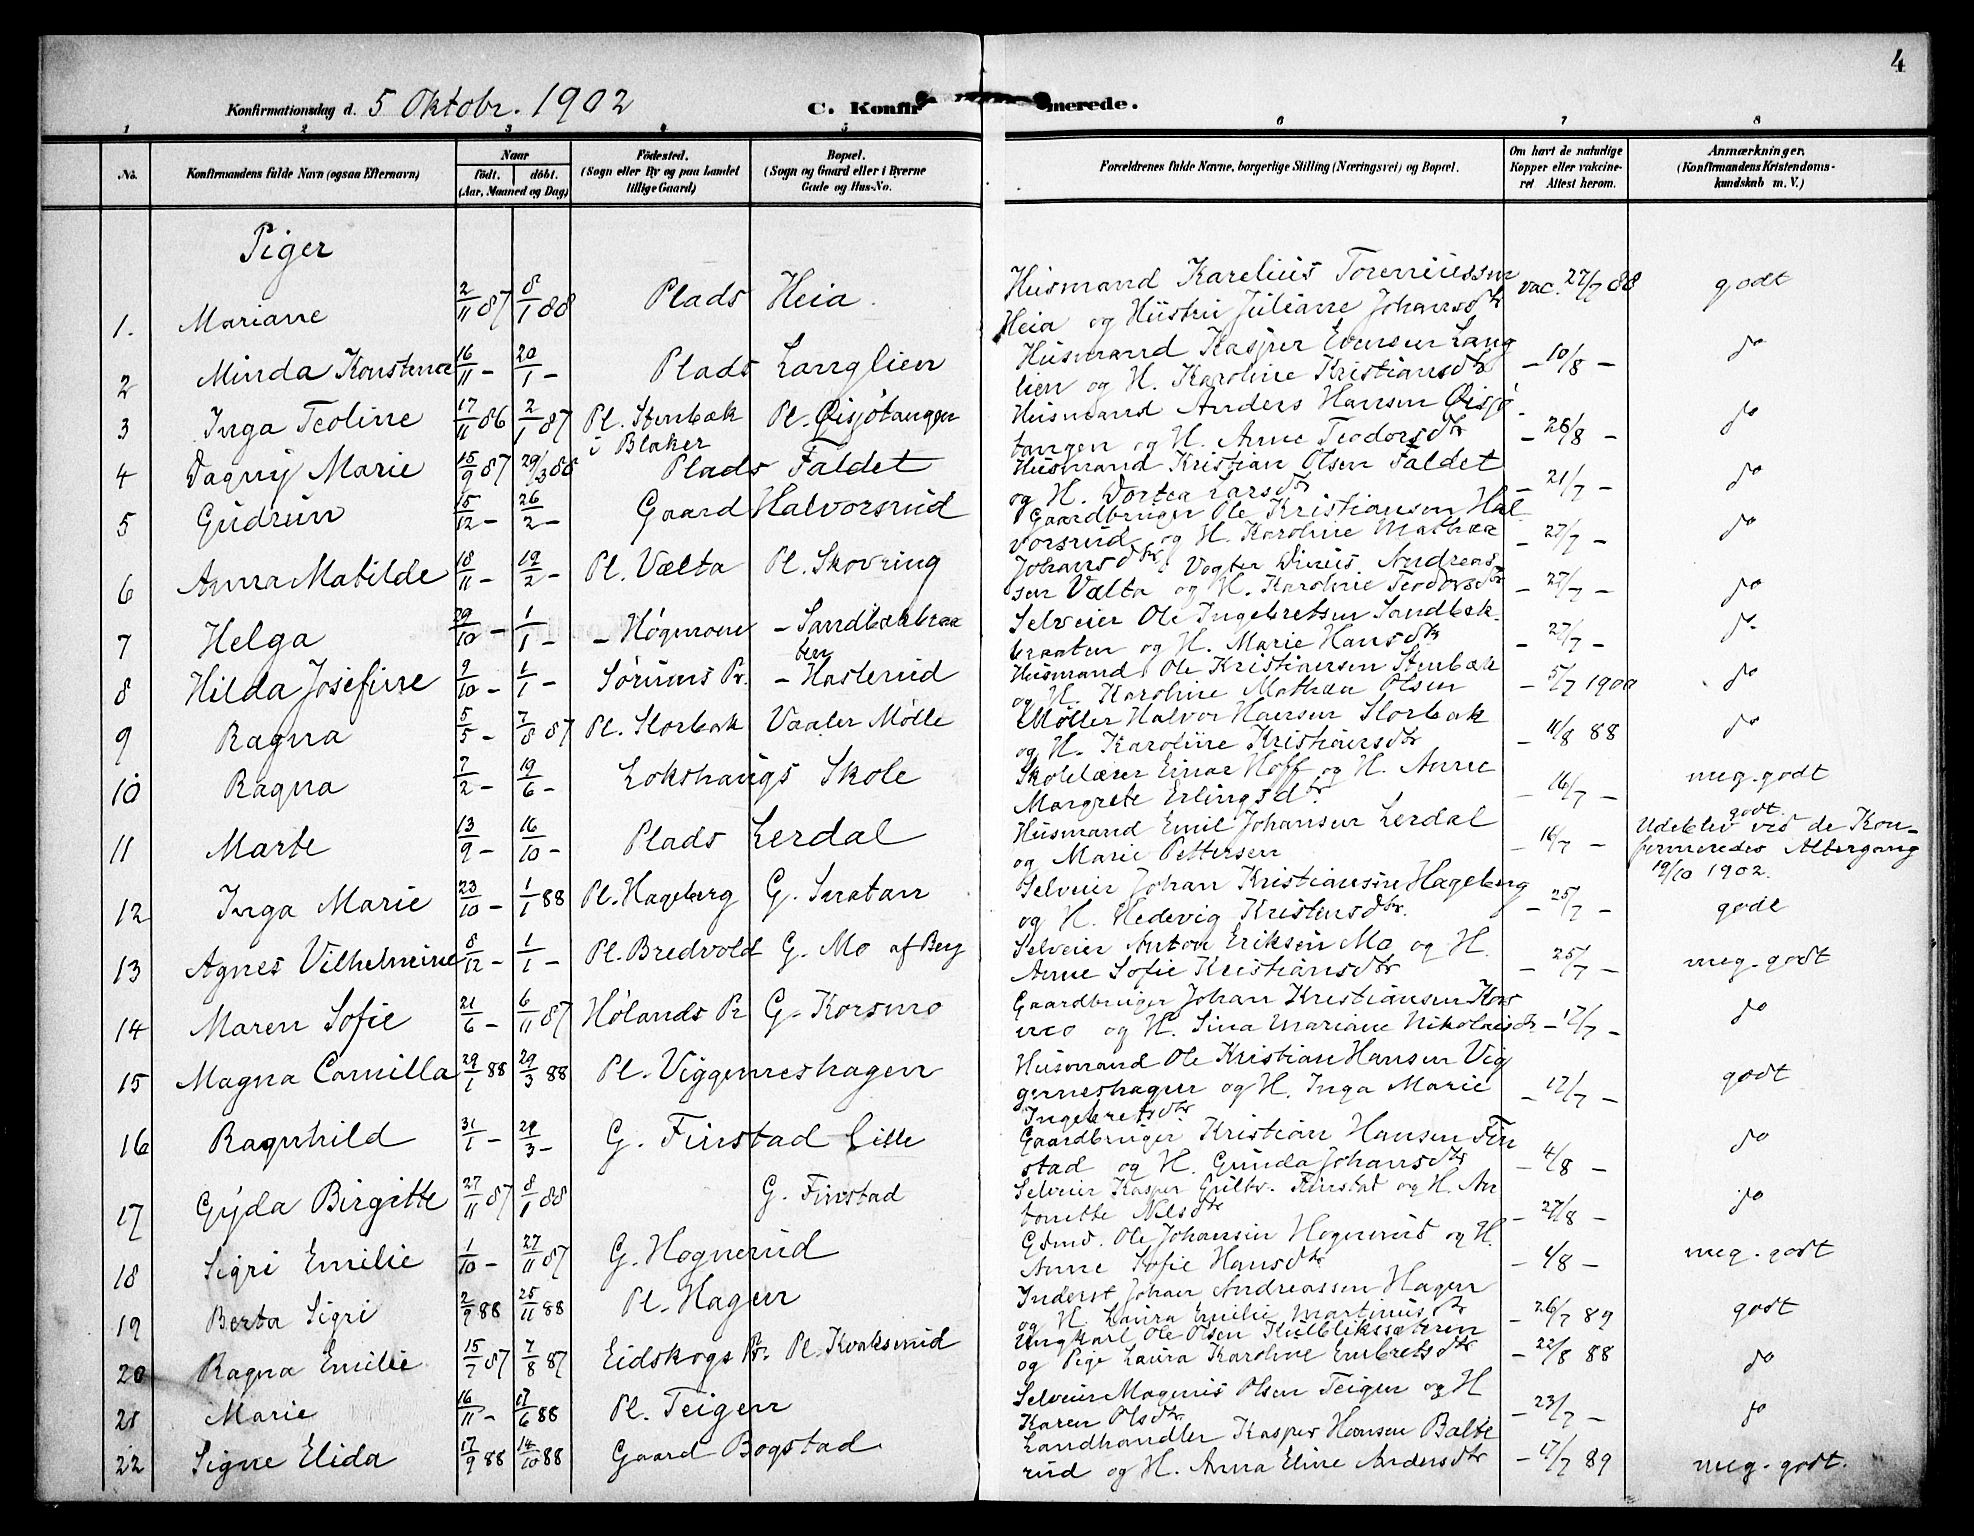 4
Konfirmationsdag d. 5 Oktobr. 1902
C. Konfir merede.
1 2 3 4 5 6 7 8
No.
Konfirmandens fulde Navn (ogsaa Efternavn)
Naar
födt. döbt.
(Aar, Maaned og Dag)
Födested.
(Sogn eller By og paa Landet
tillige Gaard)
Bopæl.
(Sogn og Gaard eller i Byerne
Gade og Hus-No.
Forældrenes fulde Navne, borgerlige Stilling (Næringsvei) og Bopæl.
Om havt de naturlige
Kopper eller vaccine-
ret Attest herom.
Anmærkninger,
(Konfirmandens Kristendoms-
kundskab m. V.)
Piger
1. Mariane 2/11 87 8/1 88 Plads Heia. Husmand Karelius
Heia og Hustru Juliane Johansdtr vac. 27/7 88 godt
2 Minda Konstence 16/11 - 20/1 - Plads Langlien Husmand Kasper Evensen Lang
lien og H. Karoline Kristiansdtr - 10/8 - do
3 Inga Teoline 17/11 86 2/1 87 Pl. Stenbæk Pl. Øisjötangen Husmand Anders Hansen Øisjö
i Blaker tangen og H. Anne Teodorsdtr - 26/8 - do
4 Dagny Marie 15/9 87 29/3 88 Plads Faldet Husmand Kristian Olsen Faldet
og H. Dortea Larsdtr - 21/7 - do
5 Gudrun 15/12 - 26/2 - Gaard Halvorsrud Gaardbruger Ole Kristiansen Hal
vorsrud og H. Karoline Mathea - 27/7 - do
Johansdtr
6 Anna Matilde 18/11 - 12/2 - Pl. Vælta Pl. Skovring Vogter Andreas
sen Vælta og H. Karoline Teodorsdtr - 27/7 - do
7 Helga 29/10 - 1/1 - - Høgmoen - Sandbækbraa
ten Selveier Ole Ingebretsen Sandbæk-
braaten og H. Marie Hansdtr - 27/7 - do
8 Hilda Josefine 9/10 - 1/1 - Sørums Pr. - Haslerud Husmand Ole Kristiansen Stenbæk
og H. Karoline Mathea Olsen - 5/7 1900 do
9 Ragna 5/5 - 7/8 87 Pl. Storbæk Vaaler Mølle Møller Halvor Hansen Storbæk
og H. Karoline Kristiansdtr - 11/8 88 do
10 Ragna 7/2 - 19/6 - Lokshaugs Skole Skolelærer Einar Hoff og H. Anne
Margrete Erlingsdtr. - 16/7 - meg. godt
11 Marte 13/9 - 16/10 - Plads Lerdal Husmand Emil Johansen Lerdal
og Marie Pettersen - 16/7 - godt
Udeblev ved de Kon-
firmeredes Altergang
19/10 1902.
12 Inga Marie 23/10 - 1/1 88 Pl. Hageberg G. Snatan Selveier Johan Kristiansen Hageberg
og H. Hedevig Kristensdtr. - 25/7 - godt
13 Agnes Vilhelmine 8/12 - 1/1 - Pl. Bredvold G. Mo af Berg Selveier Anton Eriksen Mo og H.
Anne Sofie Kristiansdtr - 25/7 - meg. godt
14 Maren Sofie 21/6 - 6/11 87 Hølands Pr G. Korsmo Gaardbruger Johan Kristiansen Kors
mo og H. Sina Mariane Nikolaisdtr - 17/7 - do
15 Magna Camilla 29/1 88 29/3 88 Pl. Viggerneshagen Husmand Ole Kristian Hansen Vig
gerneshagen og H. Inga Marie - 17/7 - godt
Ingebretsdtr
16 Ragnhild 31/1 - 29/3 - G. Finstad Lille Gaardbruger Kristian Hansen Fin
stad og H. Gunda Johansdtr - 4/8 - do
17 Gyda Birgitte 27/11 87 8/1 88 G. Finstad Selveier Kasper Gulbr. Finstad og H. An
tonette Nilsdtr - 27/8 - do
18 Sigri Emilie 1/10 - 27/11 87 G. Hognerud Gdmd. Ole Johansen Hognerud og H.
Anne Sofie Hansdtr - 4/8 - meg. godt
19 Berta Sigri 2/9 88 25/11 88 Pl. Hagen Inderst Johan Andreassen Hagen
og H. Laura Emilie Martinusdtr - 26/7 89 godt
20 Ragna Emilie 15/7 87 7/8 87 Eidskogs Pr. Pl. Kvaksrud Ungkarl Ole Olsen Kulblikssæteren
og Pige Laura Karoline Embretsdtr - 22/8 88 do
21 Marie 16/11 - 17/6 88 Pl. Teigen Selveier Magnus Olsen Teigen og H
Karen Olsdtr - 23/7 - do
22 Signe Elida 17/9 88 14/10 88 Gaard Bogstad Landhandler Kasper Hansen Balte
rud og H. Anna Eline Andersdtr - 17/7 89 meg. godt.